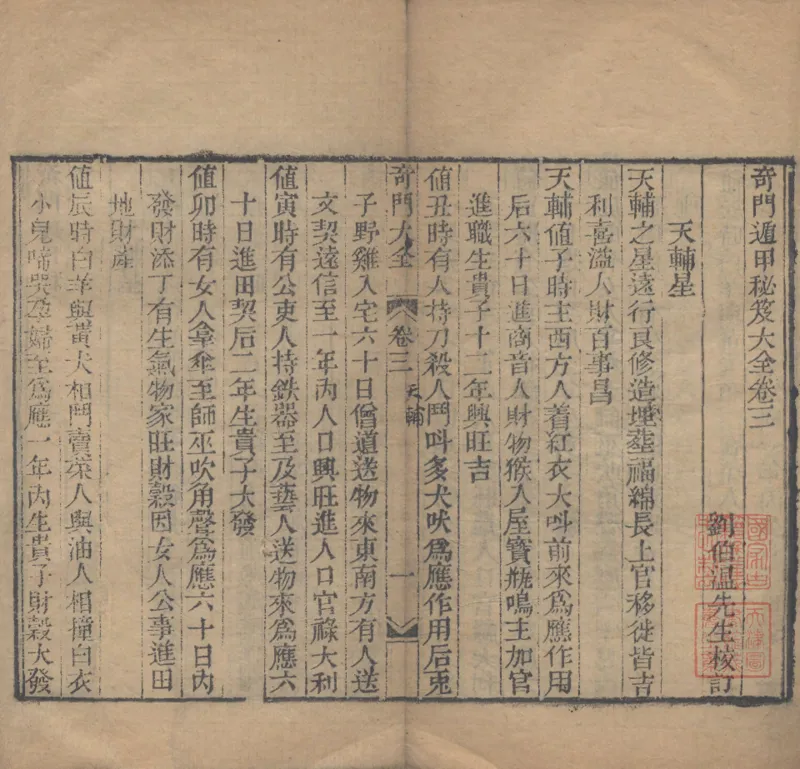 奇門遁甲秘笈大全卷三
劉伯溫先生校訂
天輔星
天輔之星遠行良修造埋塟福綿長上官移徙皆吉
利喜溢人財百事昌
天輔値子時主西方人着紅衣大呌前來爲應作用
后六十日進商音人財物猴入屋寶瓶鳴主加官
進職生貴子十二年興旺吉
値丑時有人持刀殺人鬥呌多犬吠爲應作用后兎
奇門大全 卷三 天輔 一
子野雞入宅六十日僧道送物來東南方有人送
文契遠信至一年內人口興旺進人口官祿大利
値寅時有公吏人持鉄器至及藝人送物來爲應六
十日進田契后二年生貴子大發
値卯時有女人拿傘至師巫吹角聲爲應六十日內
發財添丁有生氣物家旺財穀因女人公事進田
地財産
値辰時白羊與黃犬相鬥賣菜人與油人相撞白衣
小兒啼哭孕婦至爲應一年內生貴子財穀大發